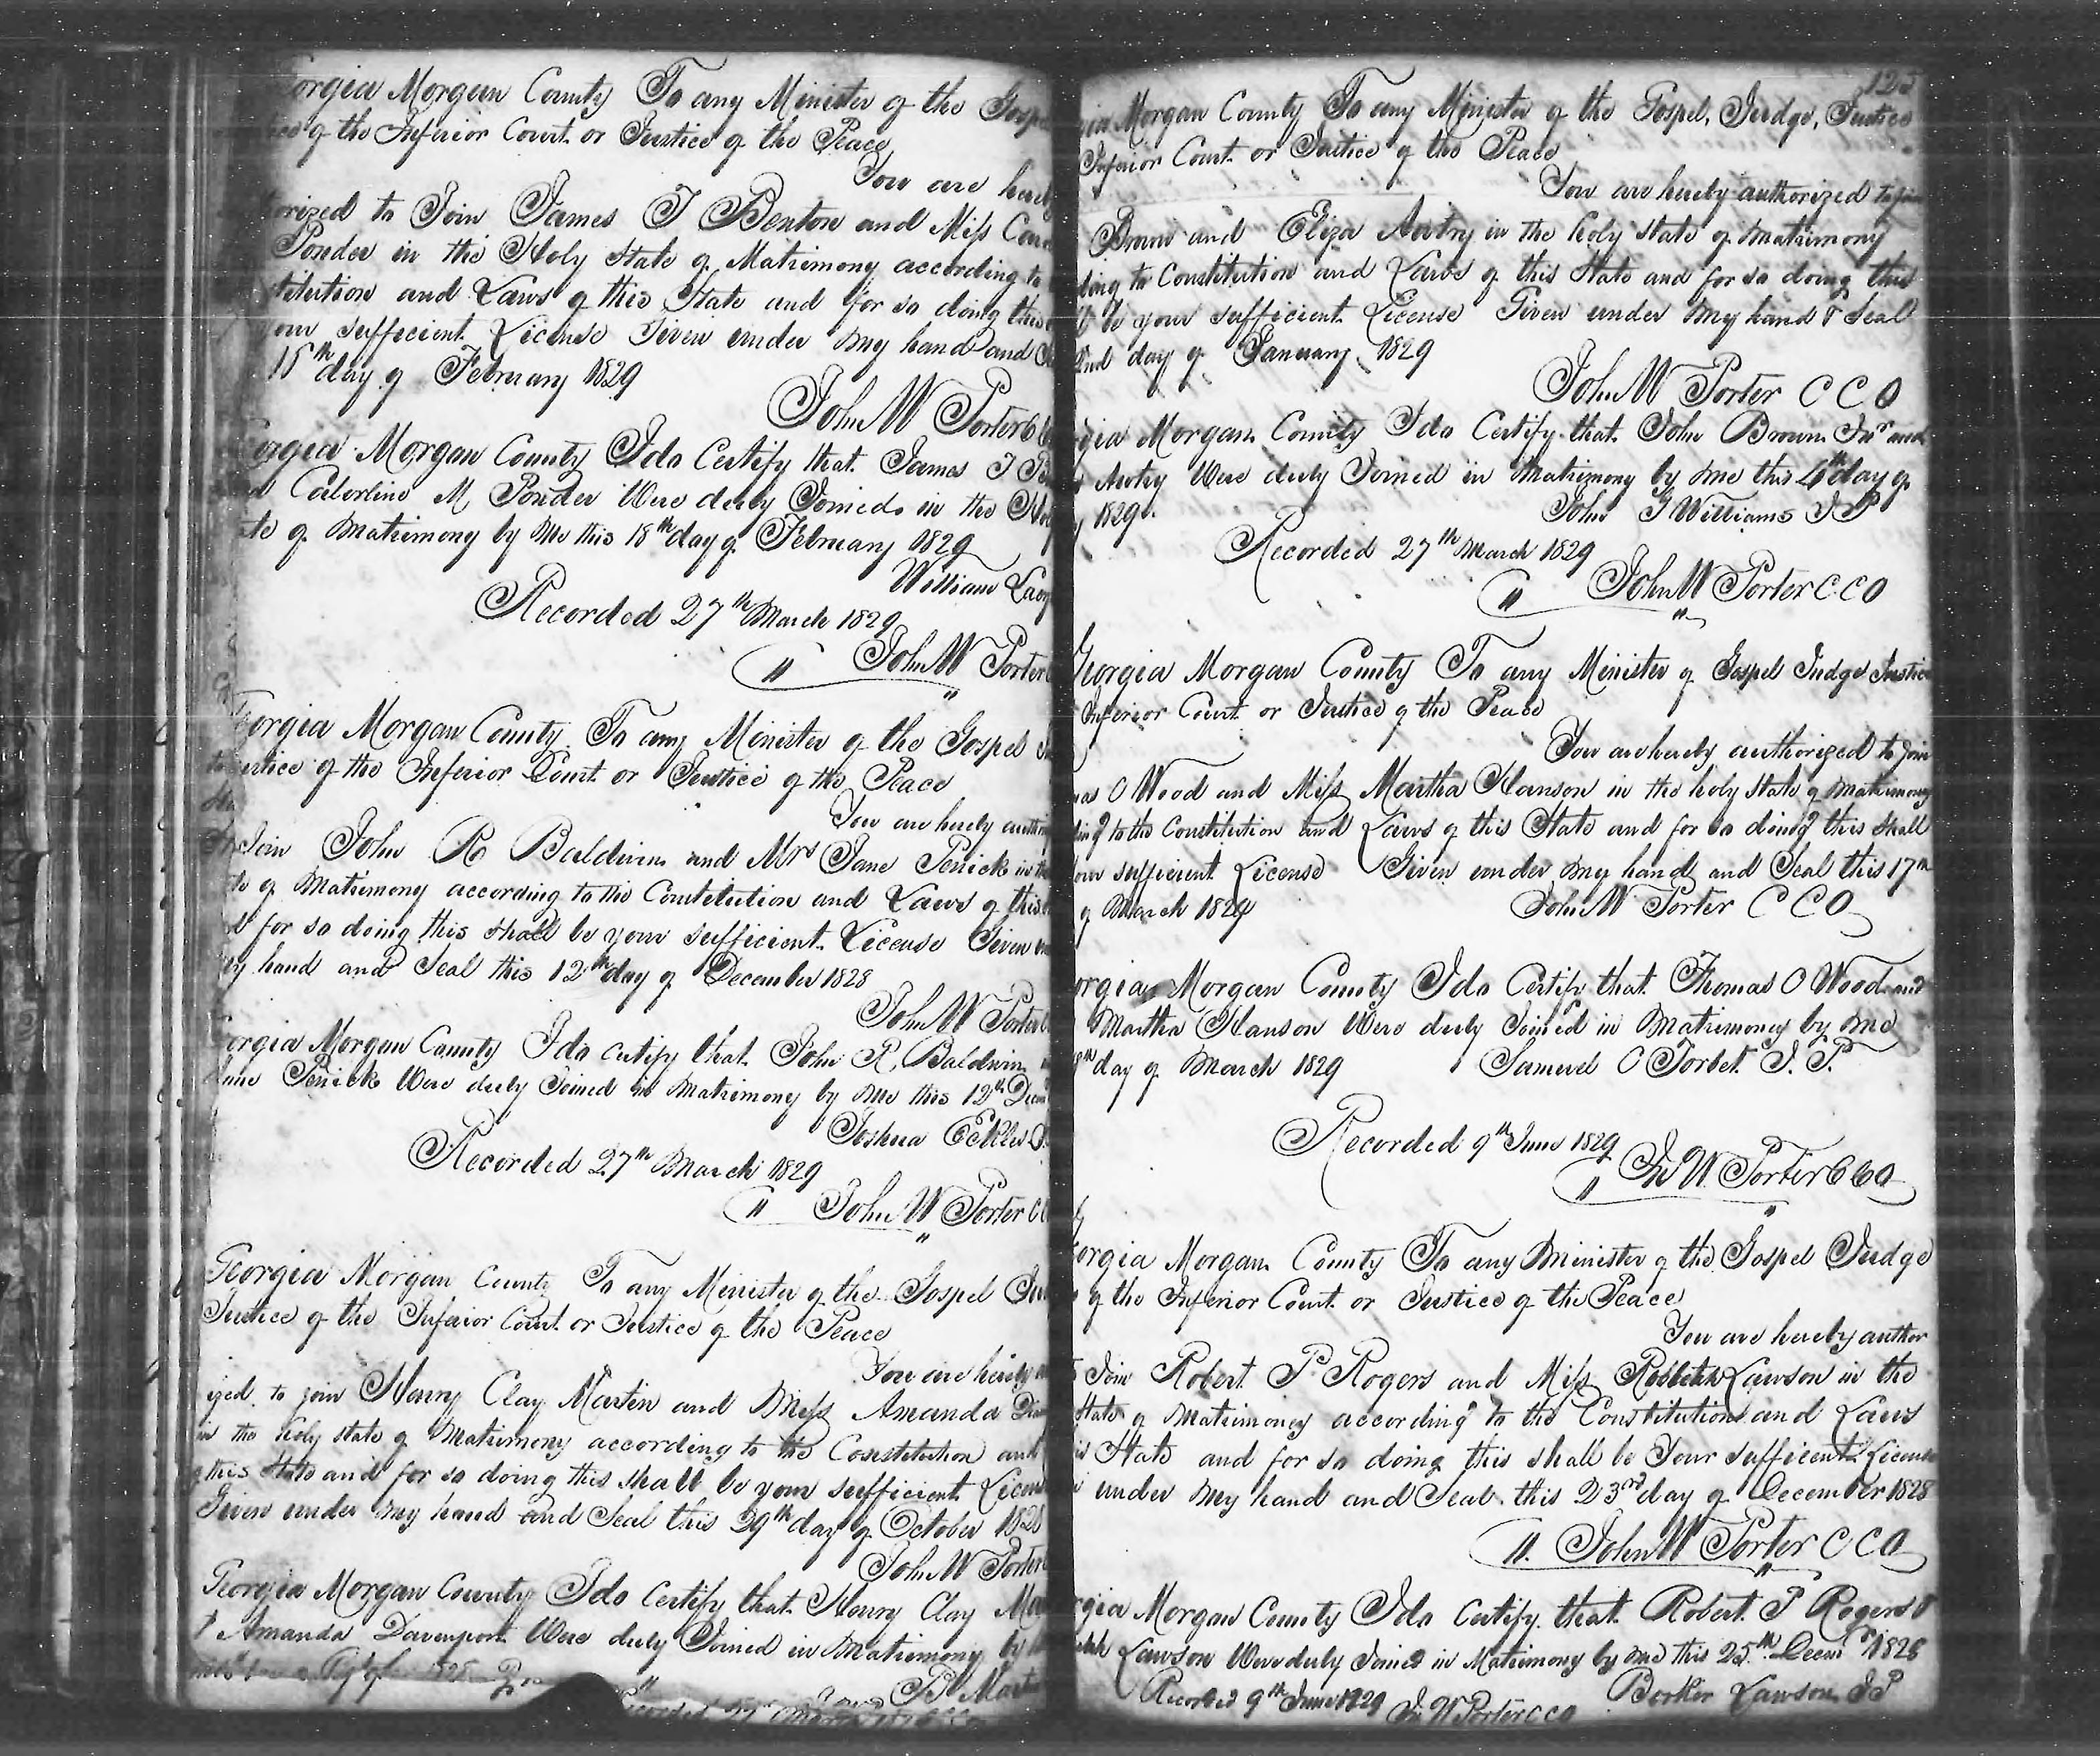 orgia Morgan County To any Minister of the Gosp
of the Inferior Court or Justice of the Peace
You are hereb
orized to Join James T Benton and Miss Car
Ponder in the Holy state of Matrimony according to
titution and Laws of this State and for so doing this
your sufficient License Given under my hand and
day of February 1829
John W Porter C C
orgia Morgan County I do Certify that James T Be
Caterline M Ponder Were duly Joined in the Hol
te of Matrimony by Me this 18th day of February 1829
William
Recorded 27th March 1829
" John W Porter
eorgia Morgan County To any Minister of the Gospel
Justice of the Inferior Court or Justice of the Peace
You are hereby autho
Join John R Baldwin and Mrs Jane Penick in the
te of Matrimony according to the Constitution and Laws of this
d for so doing this shall be your sufficient License Given un
my hand and Seal this 12th day of December 1828
John W Porter
eorgia Morgan County I do certify that John R Baldwin
Jane Penick Were duly Joined in Matrimony by Me this 12th Decem
Joshua Eckles
Recorded 27th March 1829
" John W Porter C C
Georgia Morgan County To any Minister of the Gospel Ju
Justice of the Inferior Court or Justice of the Peace
You are hereby
ized to join Henry Clay Martin and Miss Amanda
in the holy state of Matrimony according to the Constitution and
this State and for so doing this shall be your sufficient Licen
Given under my hand and Seal this 29th day of October 1828
John W Porter
Georgia Morgan County I do Certify that Henry Clay Ma
& Amanda Davenport Were duly Joined in Matrimony by
B Mart
125
gia Morgan County To any Minister of the Gospel, Judge, Justice
Inferior Court or Justice of the Peace
You are hereby authorized to join
Brown and Eliza Autry in the holy state of Matrimony
ding to Constitution and Laws of this State and for so doing this
be your sufficient License Given under my hand & Seal
2nd day of January 1829
John W Porter C C O
rgia Morgan County I do Certify that John Brown Jnr and
Autry Were duly Joined in Matrimony by me this 4th day of
y 1829.
John G Williams J P
Recorded 27th March 1829
" John W Porter C.C O
Georgia Morgan County To any Minister of Gospel Judge Justice
Inferior Court or Justice of the Peace
You are hereby authorized to join
as O Wood and Miss Martha Hanson in the holy state of Matrimony
ding to the Constitution and Laws of this State and for so doing this shall
your sufficient License Given under my hand and Seal this 17th
of March 1829
John W Porter C C O
orgia Morgan County I do Certify that Thomas O Wood and
Martha Hanson Were duly Joined in Matrimony by me
8th day of March 1829 Samuel C Torbet J. P.
Recorded 9th June 1829
" Jn W Porter C C O
eorgia Morgan County To any Minister of the Gospel Judge
of the Inferior Court or Justice of the Peace
You are hereby author
Join Robert P Rogers and Miss Lawson in the
State of Matrimony according to the Constitution and Laws
is State and for so doing this shall be Your sufficent License
under my hand and Seal this 23rd day of December 1828
" John W Porter C C O
rgia Morgan County I do Certify that Robert P Rogers &
Lawson Were duly Joined in Matrimony by me this 25th Decmr 1828
Recorded 9th June 1829 Jn W Porter C C O
Barker Lawson J P